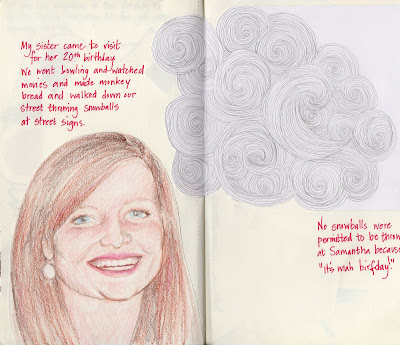 My sister came to visit
for her 20th birthday.
We went bowling and watched
movies and made monkey
bread and walked down our
street throwing snowballs
at street signs.
No snowballs were
permitted to be thrown
at Samantha because
"it's mah birfday!"